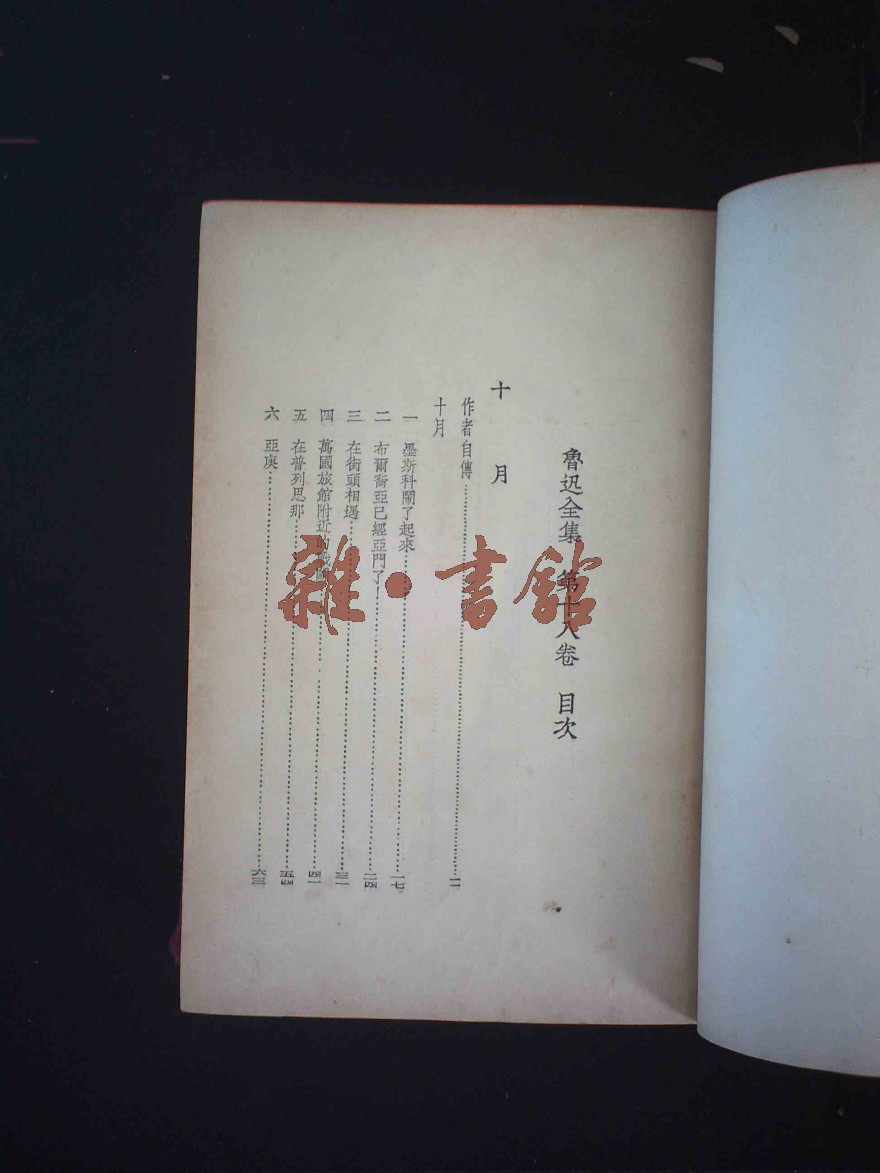 魯迅全集 第十八卷 目次
十月
作者自傳
十月
一 墨斯科鬧了起來 一七
二 布爾喬亞已經亞門了！ 二四
三 在街頭相遇 三二
四 萬國旅館附近的戰 四一
五 在普列思那 五四
六 亞庚 六三
雜·書館